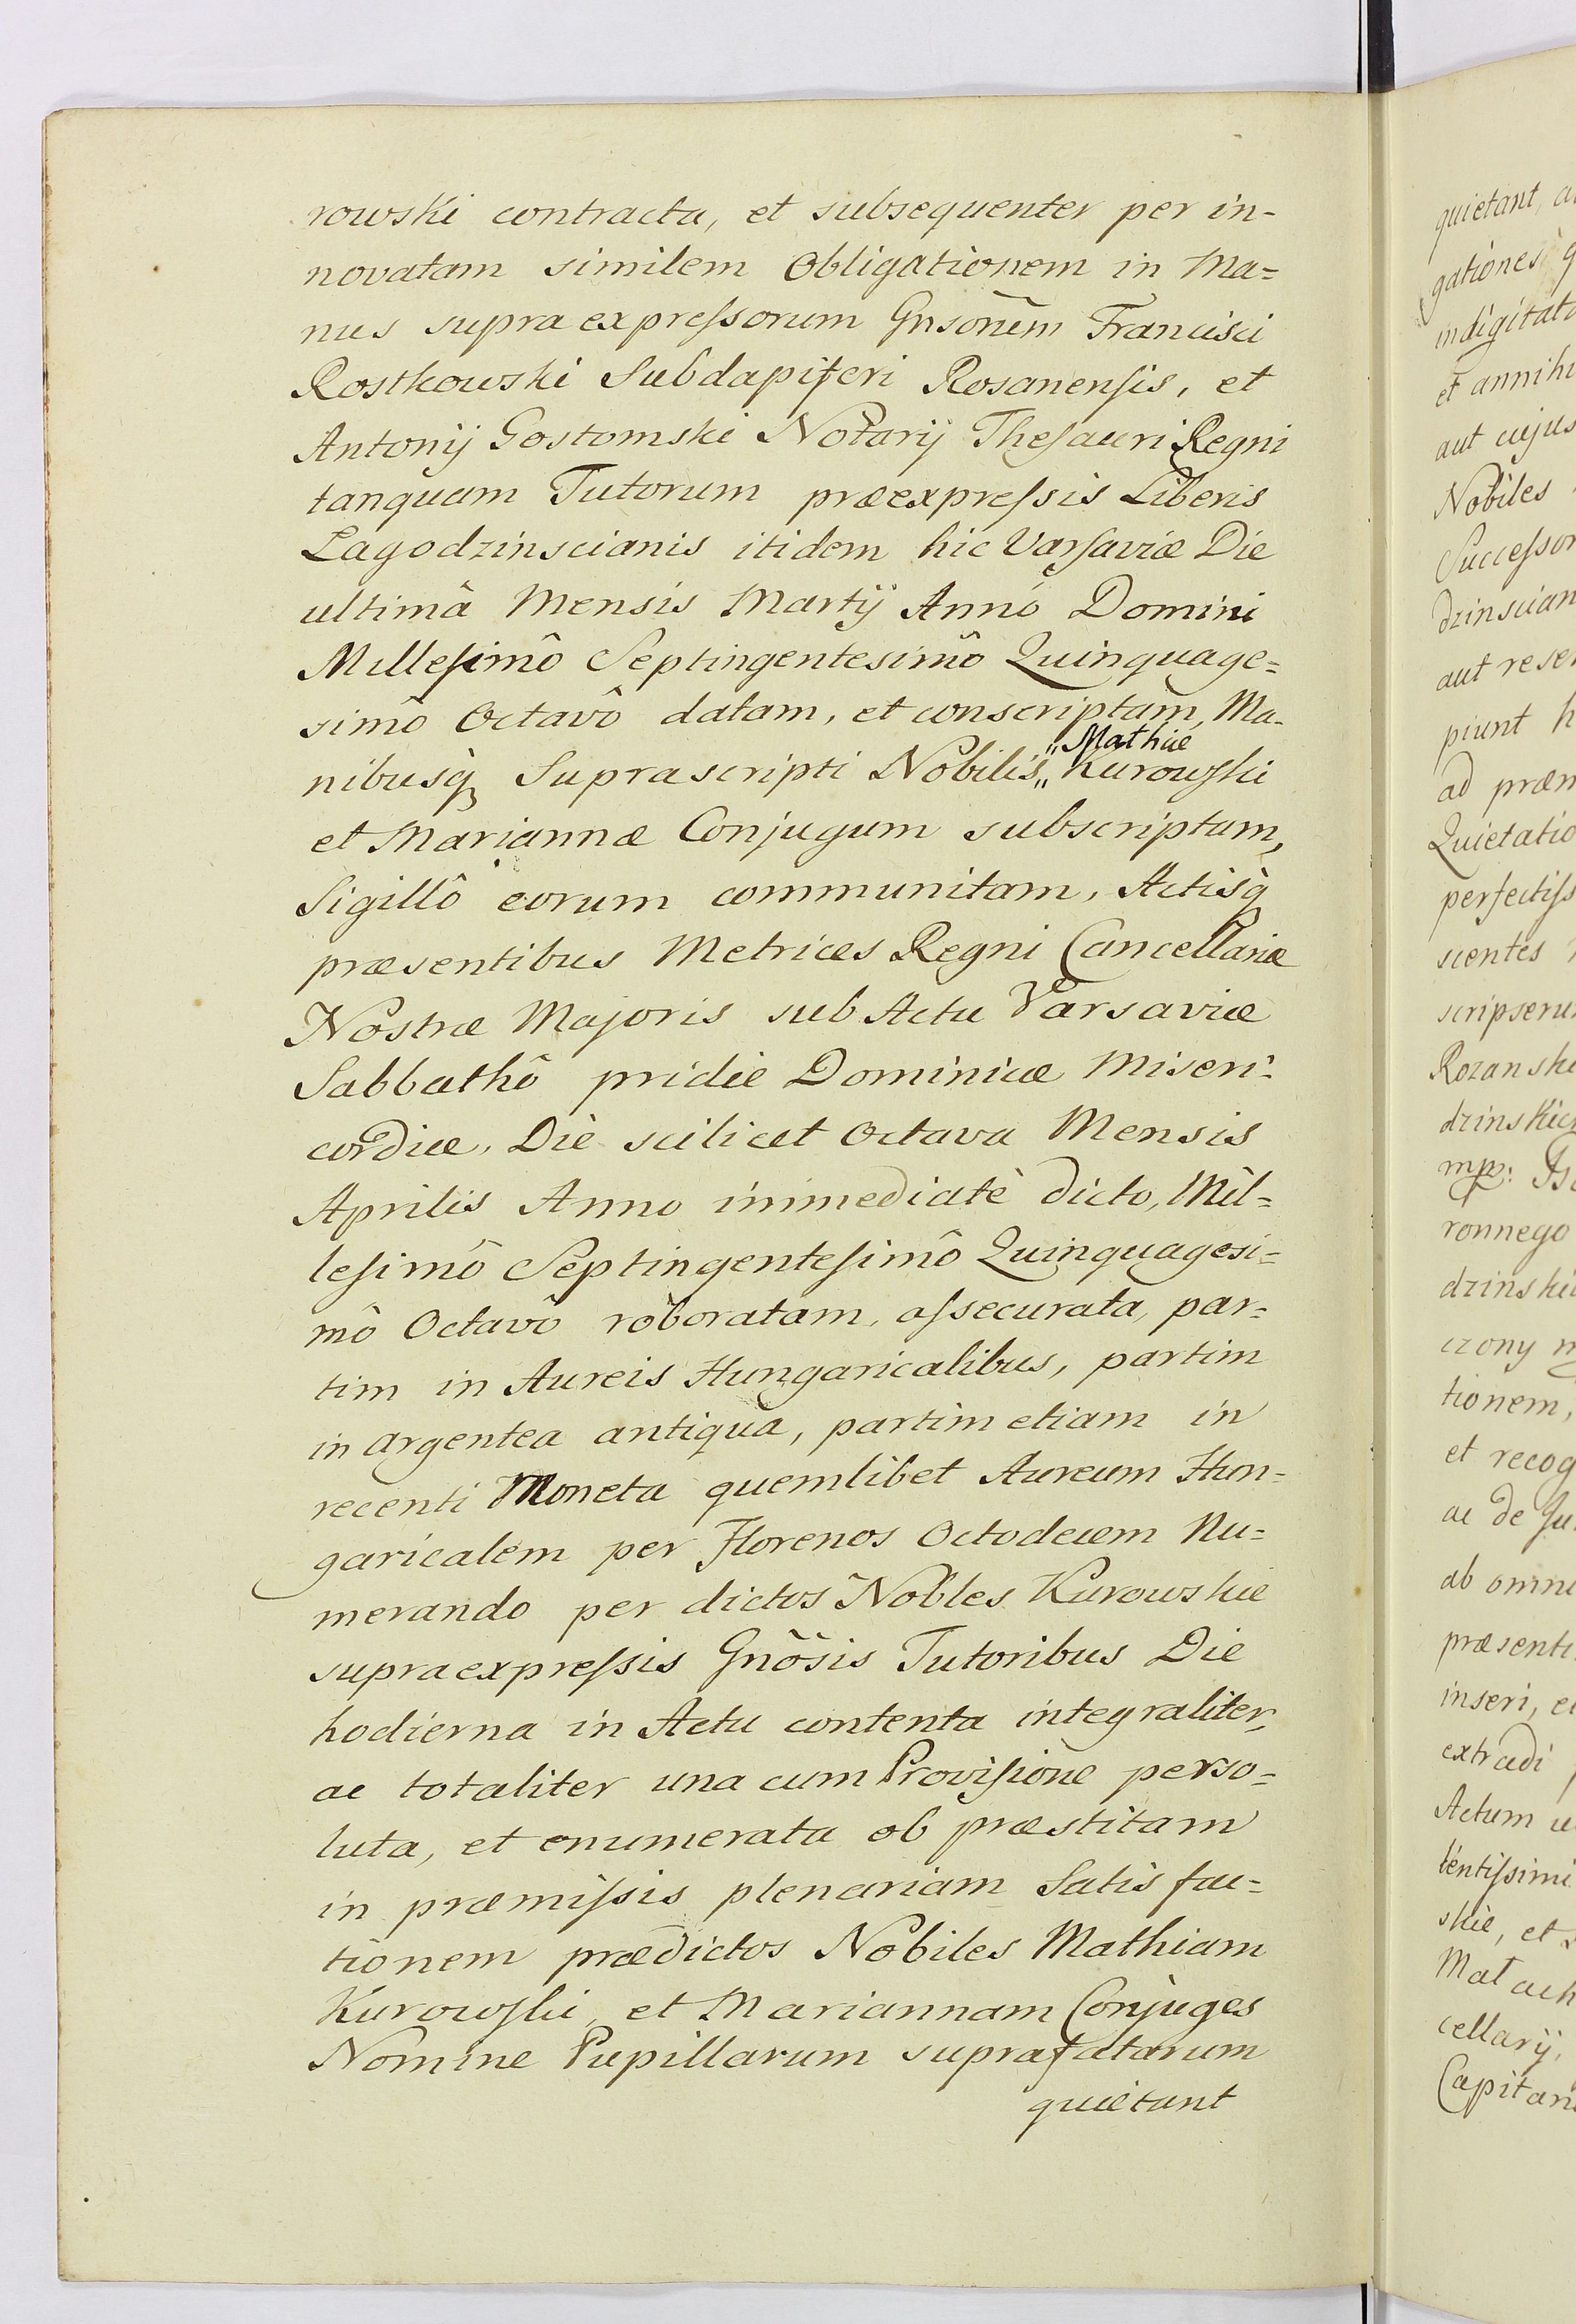 rowski contracta, et subsequenter per in-
novatam similem Obligationem in Ma=
nus supra expreſsorum Gnsorũm Francisci
Rostkowski Subdapiferi Rosanenſis, et
Antonij Gostomski Notarij Theſauri Regni
tanquam Tutorum præexpreſsis Liberis
Lagodzinscianis itidem hic Varſaviæ Die
ultimâ Mensis Martij Annô Domini
Milleſimô Septingentesimô Quinquage=
simô Octavô datam, et conscriptam, Ma-
nibusq́ Suprascripti Nobilis „Mathiæ„ Kurowſki
et Mariannæ Conjugum subscriptam,
Sigillô eorum communitam, Actisq́
præsentibus Metrices Regni Cancellariæ
Nostræ Majoris sub Actu Varsaviæ
Sabbathô pridie Dominicæ Miseri-
cordiæ, Die scilicet Octava Mensis
Aprilis Anno immediatè dicto, Mil=
leſimô Septingenteſimô Quinquagesi=
mô Octavô roboratam, aſsecurata, par=
tim in Aureis Hungaricalibus, partim
in argentea antiqua, partim etiam in
recenti Moneta quemlibet Aureum Hun=
garicalem per Florenos Octodecem Nu=
merando per dictos Nobles Kurowskie
supraexpreſsis Gnõsis Tutoribus Die
hodierna in Actu contenta integraliter,
ac totaliter una cum Proviſione perso=
luta, et enumerata ob præstitam
in præmiſsis plenariam Satis fac=
tionem prædictos Nobiles Mathiam
Kurowſki, et Mariannam Conjuges
Nomine Pupillarum suprafatarum
quietant
quietant,
gationes
indigitat
et annihi
aut cujus
Nobiles
Succeſsor
dzinscian
aut reser
piunt h
ad præm
Quietatio
perfectiſs
scientes
scripseru
Rozanski
dzinskich
mp:
ronnego
dzinski
czony
tionem,
et recog
ac de
ab omni
præsenti
inseri, et
extradi
Actum u
tentiſsimi
skie, et
Matach
cellarij,
Capitan